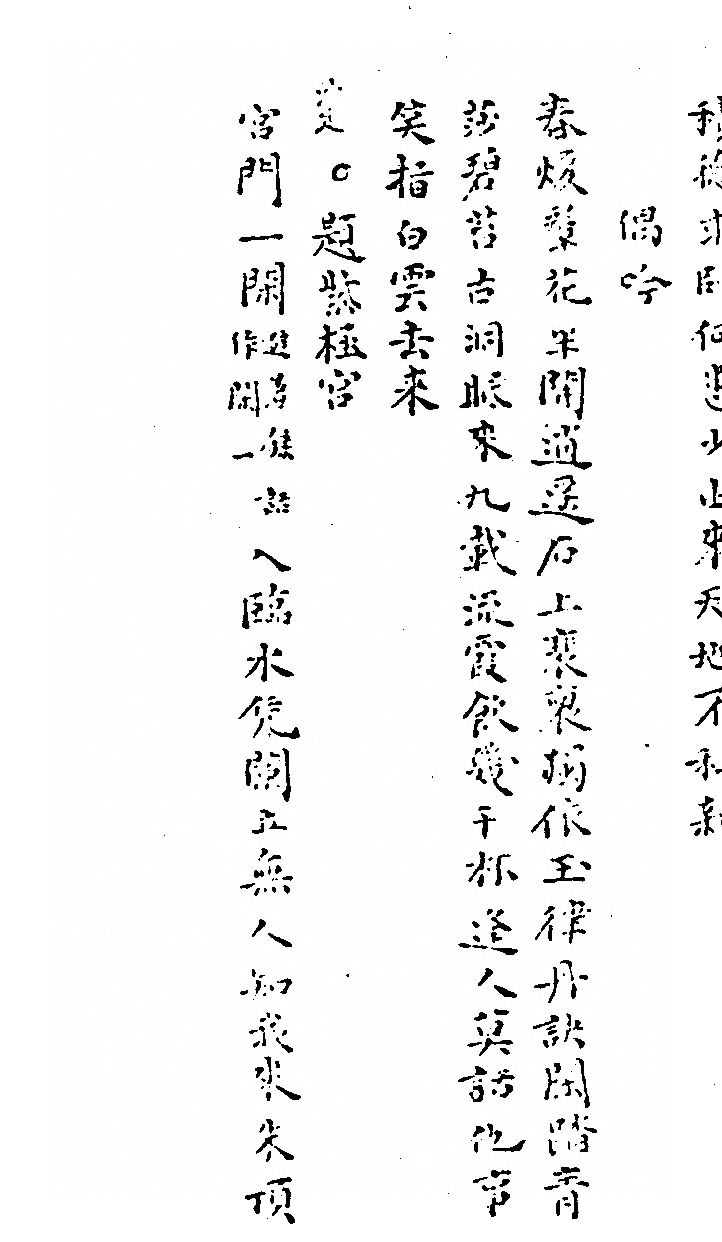 來天地不
偶吟
春暖羣花半開逍遥石上裴褢獨依玉律丹訣閑踏青
莎碧苔古洞眠來九載流霞飲幾千杯逢人莫話他事
笑指白雲去來
○題紫極宮
宮門一閑作閑一入臨水凭闌立無人知我來朱頂